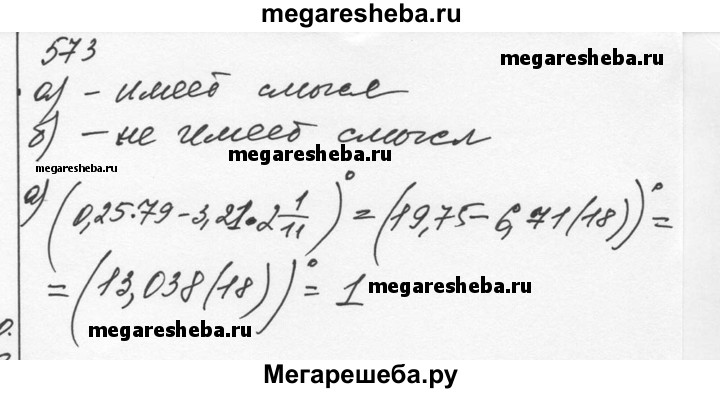 megaresheba.ru
573
megaresheba.ru
а) – имеет смысл
б) – не имеет смысл
megaresheba.ru
megaresheba.ru
а) (0,25·79 – 3,21·2 1/11)⁰ = (19,75 – 6,71(18))⁰ =
= (13,038(18))⁰ = 1 megaresheba.ru
megaresheba.ru
Мегарешеба.ру